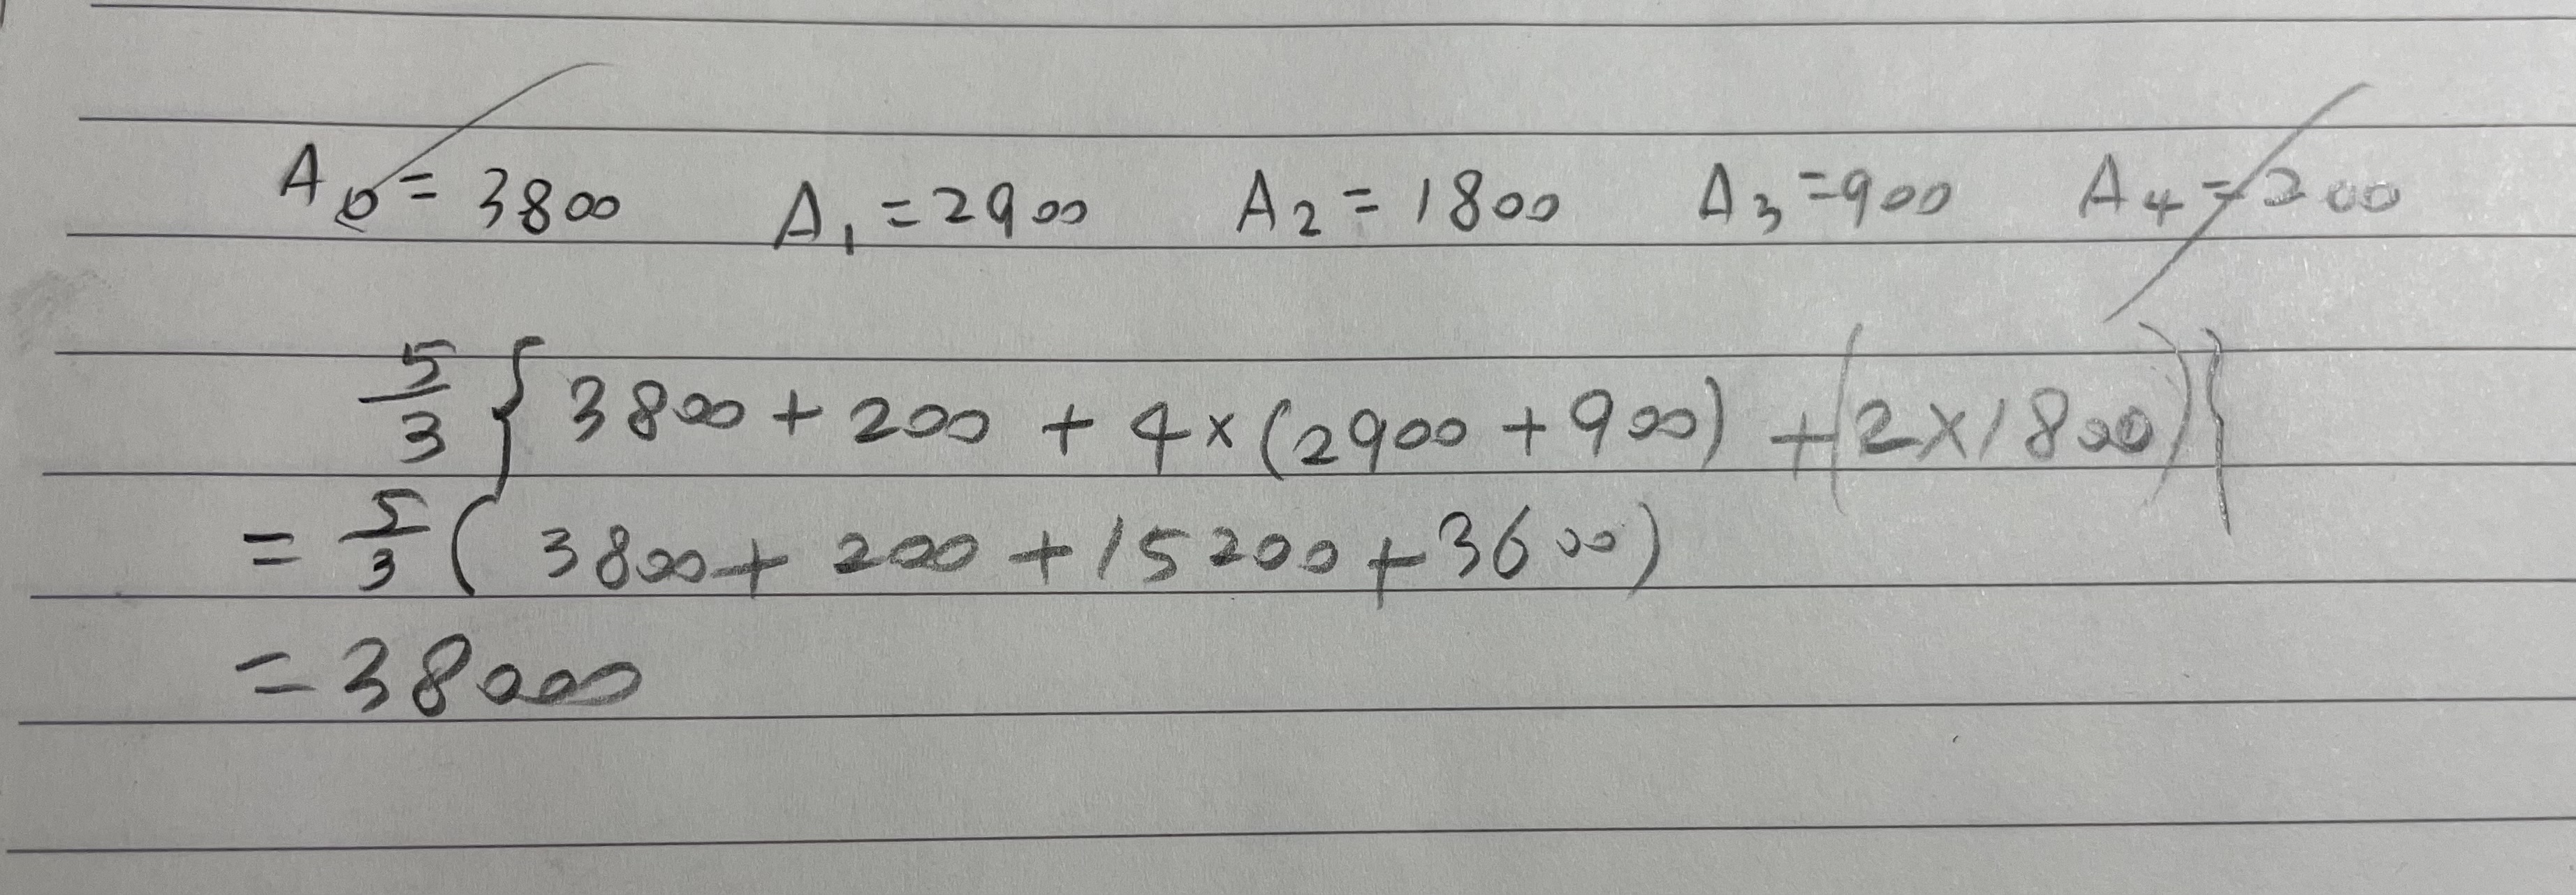 A₀ = 3800 A₁ = 2900 A₂ = 1800 A₃ = 900 A₄ = 200
5/3 { 3800 + 200 + 4 × (2900 + 900) + (2 × 1800) }
= 5/3 ( 3800 + 200 + 15200 + 3600 )
= 38000